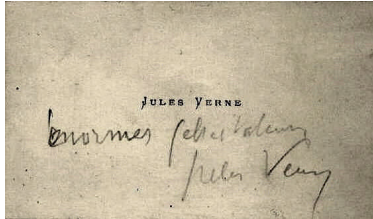 JULES VERNE
Enormes félicitations
Jules Verne